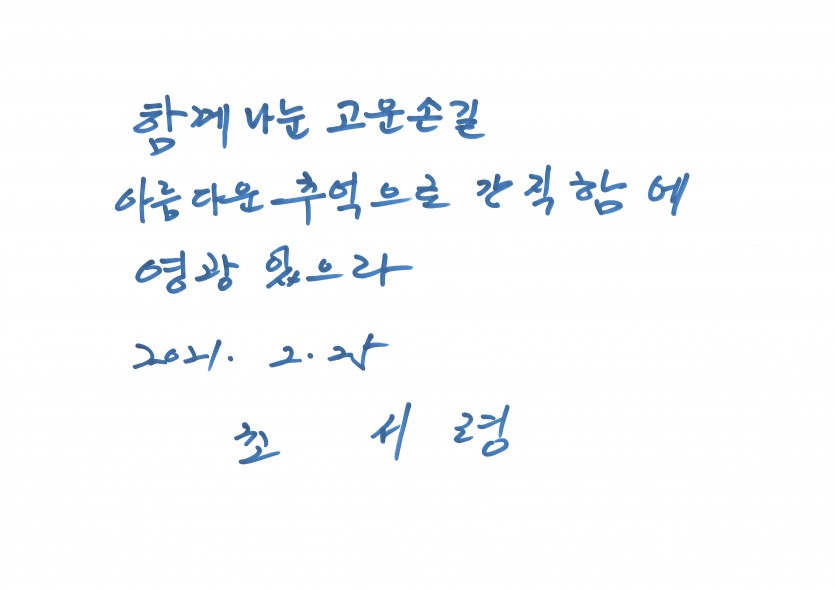 함께 나눈 고운손길
아름다운 추억으로 간직함에
영광 있으라
2021. 2. 25
초 서 령